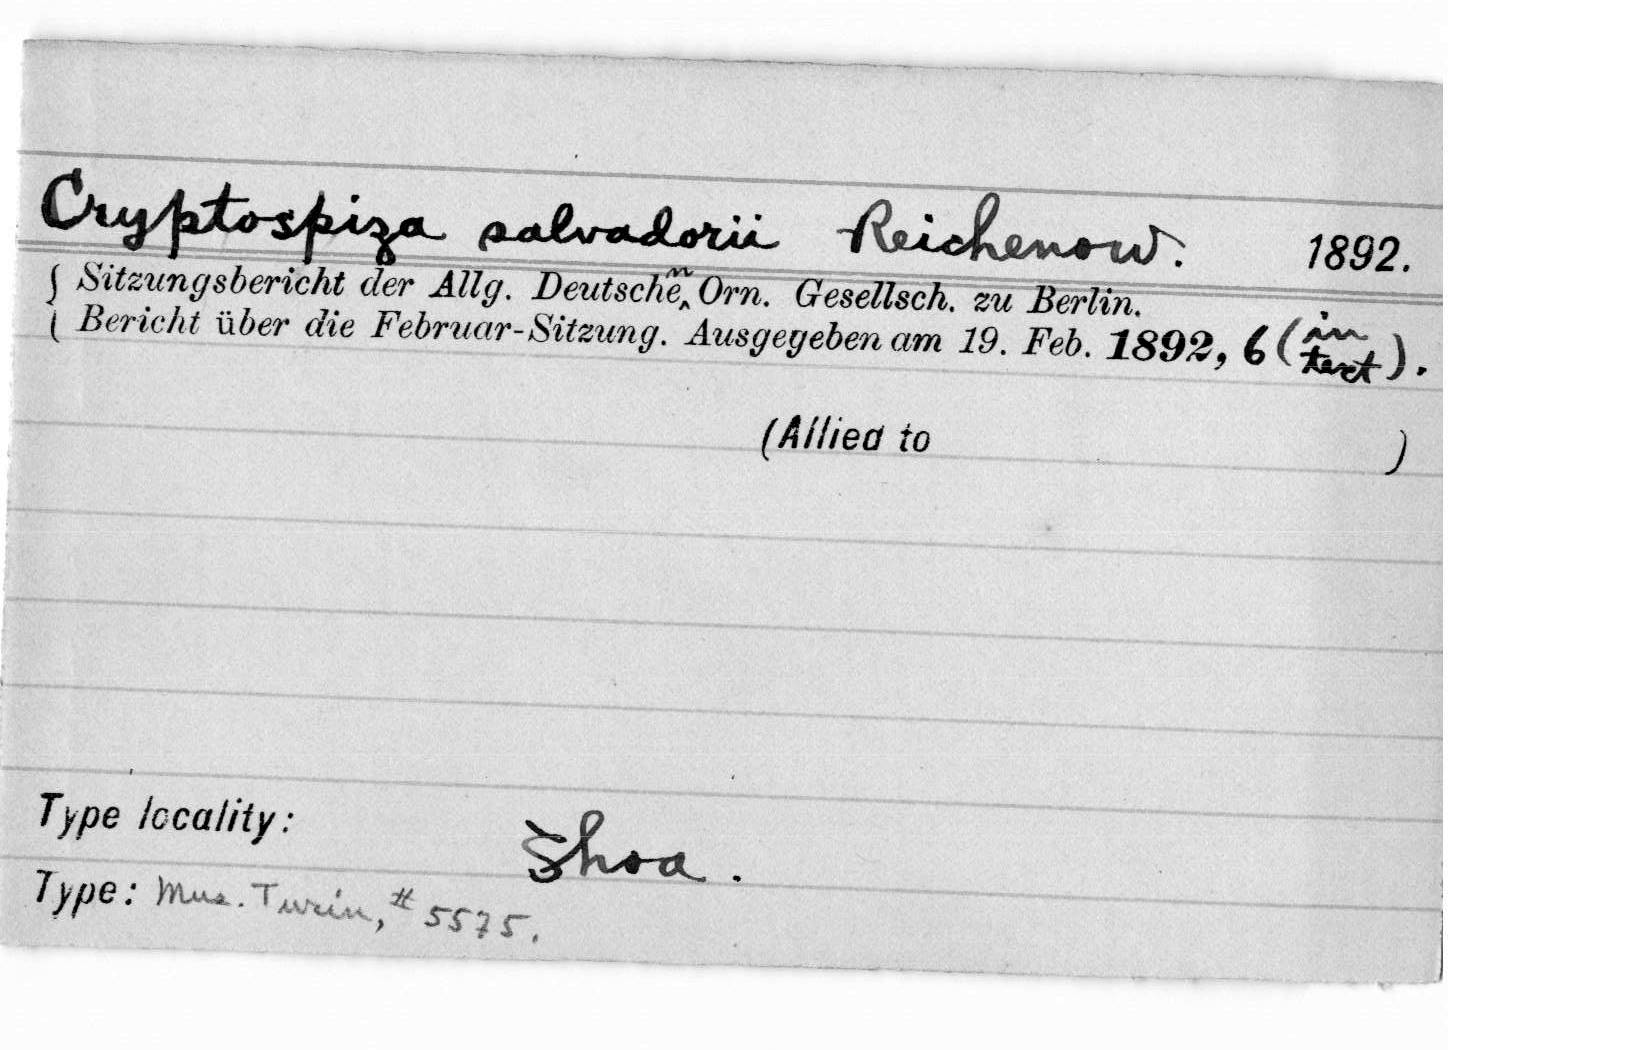 Cryptospiza salvadorii Reichenow. 1892.
{ Sitzungsbericht der Allg. Deutschen Orn. Gesellsch. zu Berlin.
Bericht über die Februar-Sitzung. Ausgegeben am 19. Feb. 1892, 6 (in text).
(Allied to )
Type locality: Shoa.
Type: Mus. Turin, # 5575.